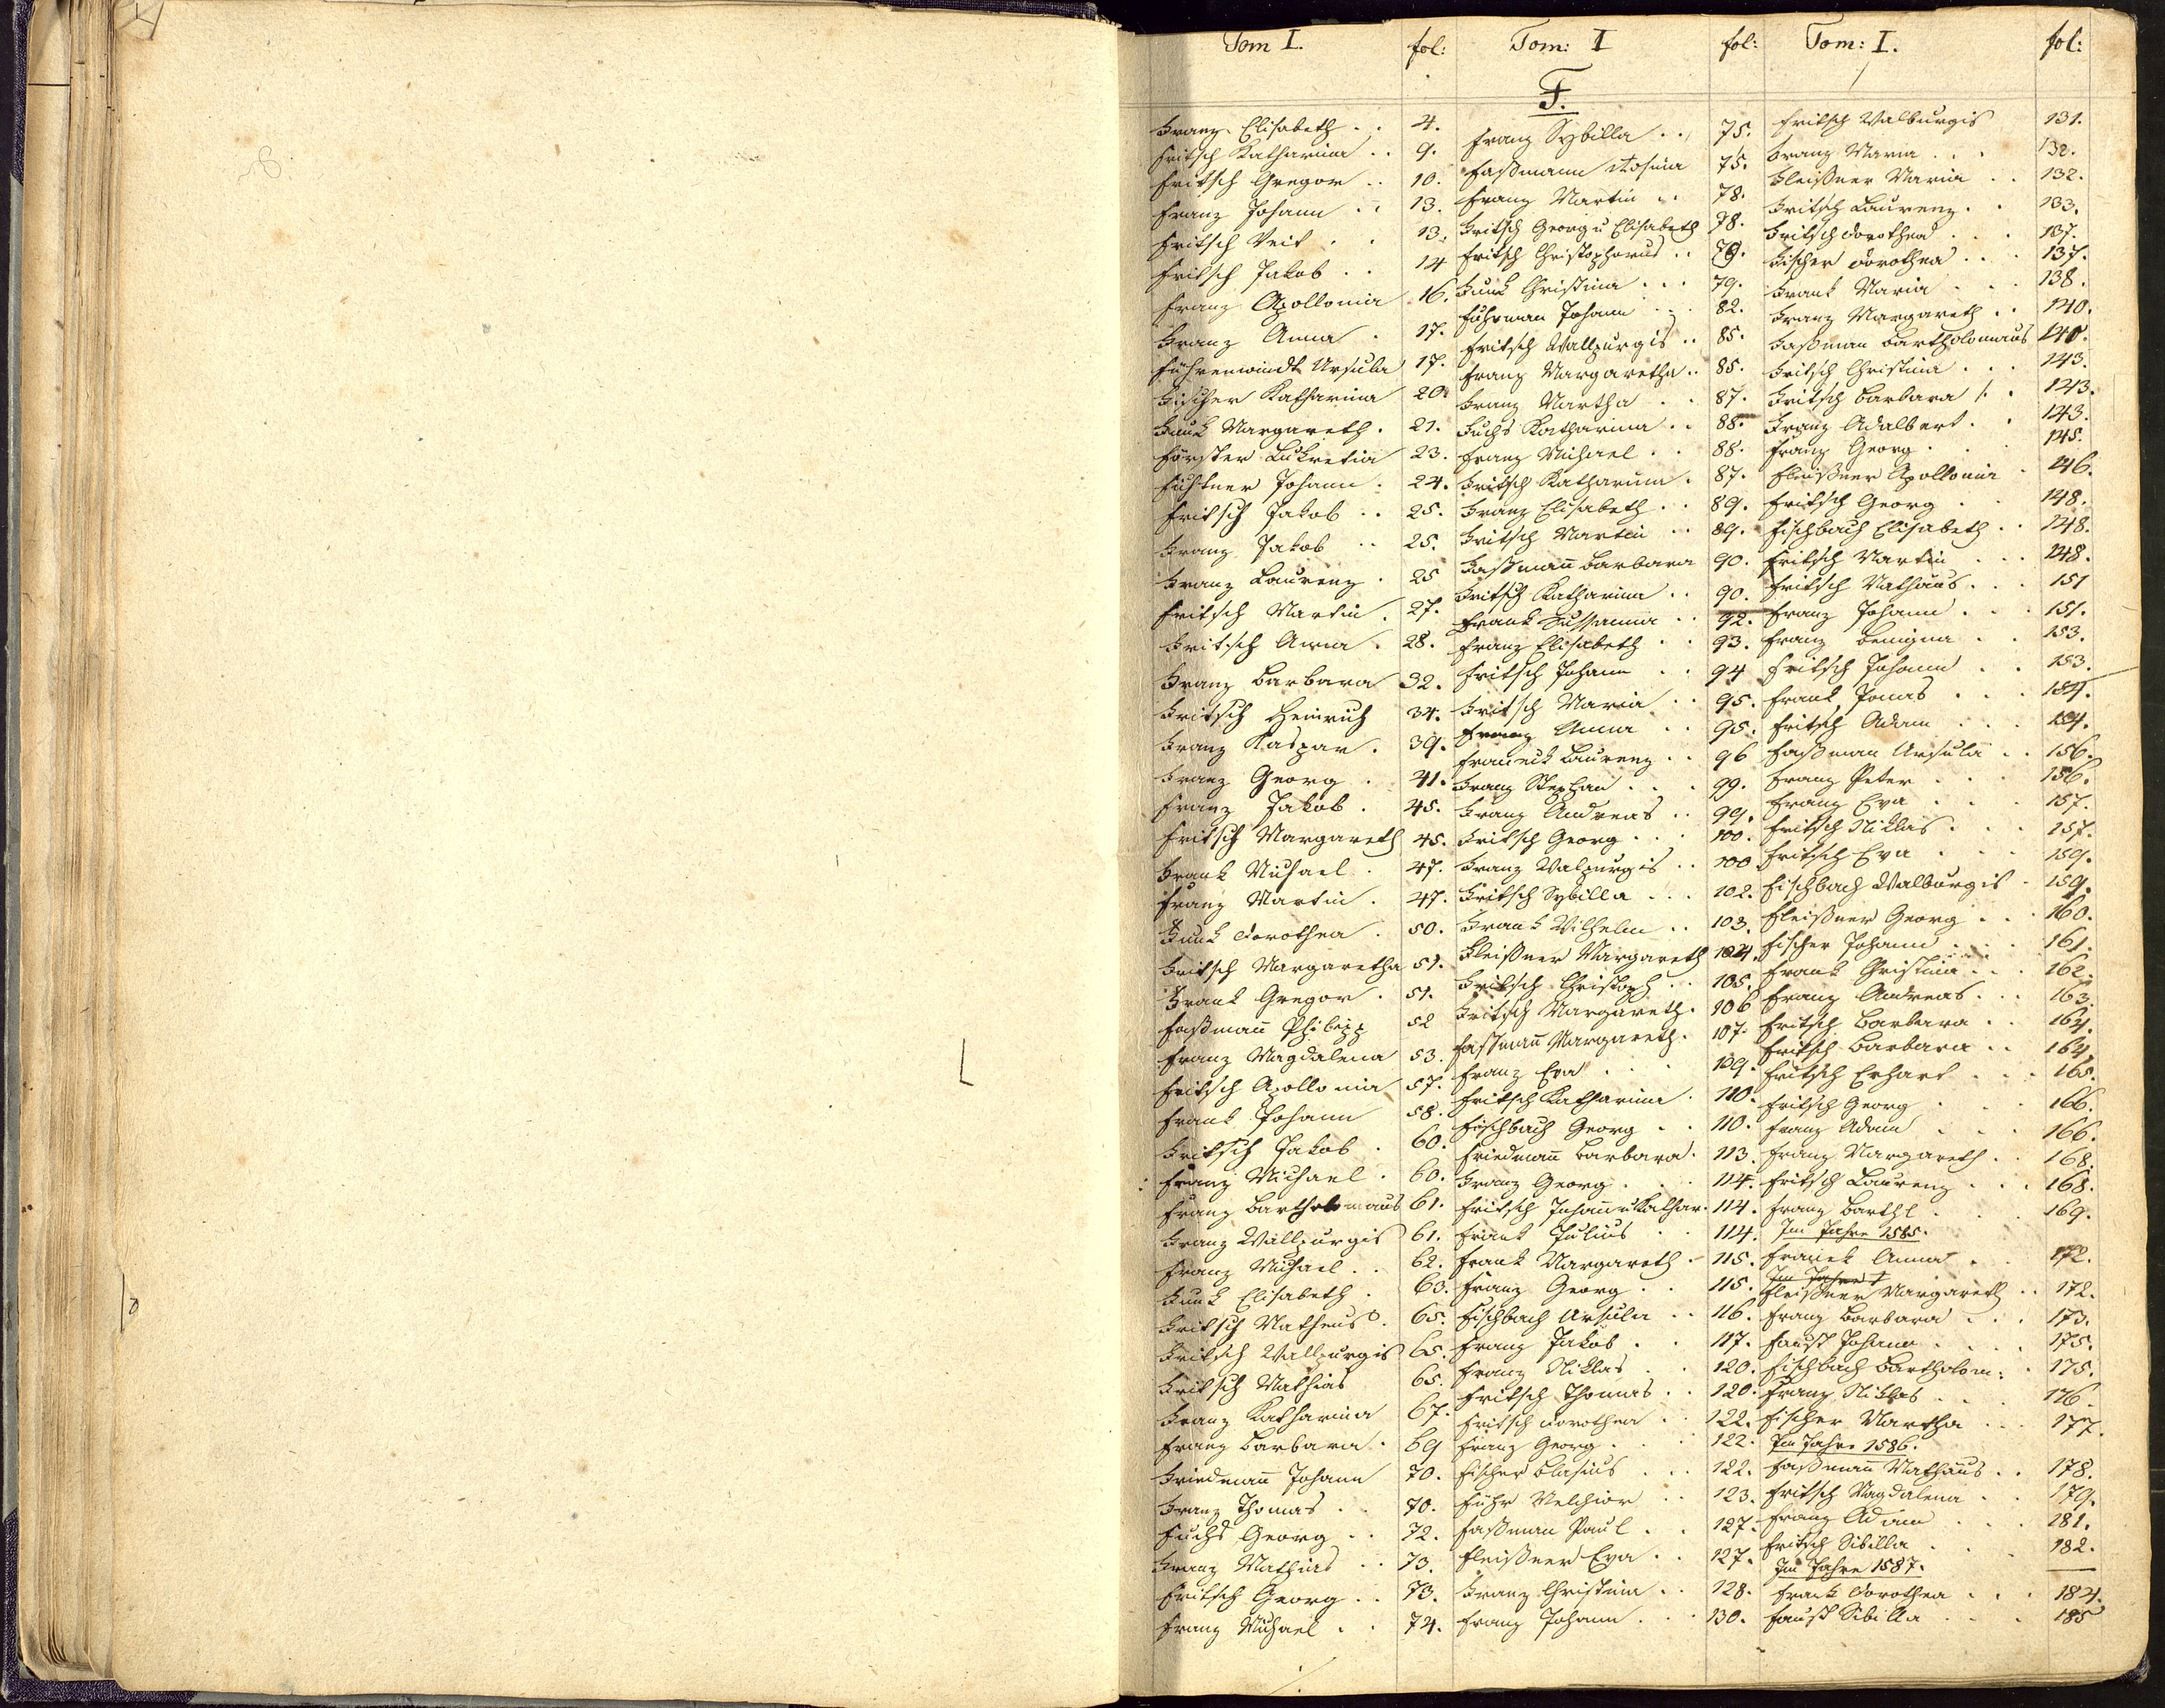 Tom I. fol: Tom: I fol: Tom: I. fol:
F.
Franz Elisabeth . . 4.
Fritsch Katharina . . 9.
Fritsch Gregor . . 10.
Franz Johann . . 13.
Fritsch Veit . . 13.
Fritsch Jakob . . 14
Franz Apollonia 16.
Franz Anna . 17.
Führenwindt Ursula 17.
Fischer Katharina 20.
Funk Margareth . 21.
Förster Lukretia 23.
Johann . 24.
Fritsch Jakob . . 25.
Franz Jakob . . 25.
Franz Laurenz . 25
Fritsch Martin . 27.
Fritsch Anna . 28.
Franz Barbara 32.
Fritsch Heinrich 34.
Franz Kaspar . 39.
Franz Georg . 41.
Franz Jakob . 45.
Fritsch Margareth 45.
Frank Michael . 47.
Franz Martin . 47.
Funk Dorothea . 50.
Fritsch Margaretha 51.
Frank Gregor . 51.
Faßmañ Philipp 52
Franz Magdalena 53.
Fritsch Apollonia 57.
Frank Johann 58.
Fritsch Jakob . 60.
Franz Michael . 60.
Franz Bartholomaus 61.
Franz Wallpurgis 61.
Franz Michael . . 62.
Funk Elisabeth . 63.
Fritsch Matheus . 65.
Fritsch Wallpurgis 65.
Fritsch Mathias 65.
Franz Katharina 67.
Franz Barbara . 69
Friedmañ Johann 70.
Franz Thomas . . 70.
Fuchs Georg . . 72.
Franz Mathias . . 73.
Fritsch Georg . . 73.
Franz Michael . . 74.
Franz Sybilla . . 75.
Faßmann Rosina 75.
Franz Martin . . 78.
Fritsch Georg u Elisabeth 78.
Fritsch Christophorus . . 79.
Funk Christina . . . 79.
Fuhrman Johann . . 82.
Fritsch Wallpurgis . . 85.
Franz Margaretha . . 85.
Franz Martha . . 87.
Fuchs Katharina . . 88.
Franz Michael . . 88.
Fritsch Katharina . 87.
Franz Elisabeth . . 89.
Fritsch Martin . . 89.
Faßmañ Barbara 90.
Fritsch Katharina . . 90.
Frank Sussanna . . 92.
Franz Elisabeth . . 93.
Fritsch Johann . . 94
Fritsch Maria . . 95.
Franz Anna . . 95.
Laurenz . . 96
Franz Stephan . . . 99.
Franz Andreas . . 99.
Fritsch Georg . . . 100.
Franz Walpurgis . . 100
Fritsch Sybilla . . . 102.
Frank Wilhelm . . 103.
Fleißner Margareth 104.
Fritsch Christoph . . 105.
Fritsch Margareth . 106
Faßmañ Margareth . 107.
Franz Eva . . . 109.
Fritsch Katharina . 110.
Fischbach Georg . . 110.
Friedmañ Barbara . 113.
Franz Georg . . . 114.
Fritsch Johañ u Kathar. 114.
Frank Julius . . 114.
Frank Margareth . 115.
Franz Georg . . 115.
Fischbach Ursula . . 116.
Franz Jakob . . 117.
Franz Niklas . . 120.
Fritsch Thomas . . 120.
Fritsch Dorothea . . 122.
Franz Georg . . . 122.
Fischer Blasius . . . 122.
Führ Melchior . . 123.
Faßman Paul . . 127.
Fleißner Eva . . 127.
Franz Christina . . 128.
Franz Johann . . . 130.
Fritsch Walburgis 131.
Franz Maria . . . 132.
Fleißner Maria . . 132.
Fritsch Laurenz . . 133.
Fritsch Dorothea . . . 137.
Fischer Dorothea . . . 137.
Frank Maria . . . 138.
Franz Margareth . . 140.
Faßman Bartholomaus 140.
Fritsch Christina . . . 143.
Fritsch Barbara . . 143.
Franz Adalbert . . 143.
Franz Georg . . . 145.
Fleißner Apollonia . 146.
Fritsch Georg . . 148.
Fischbach Elisabeth . . 148.
Fritsch Martin . . . 148.
Fritsch Mathäus . . . 151
Franz Johann . . . 151.
Franz Benigna . . 153.
Fritsch Johann . . 153.
Frank Jonas . . . 154.
Fritsch Adam . . . 154.
Faßman Ursula . . 156.
Franz Peter . . . 156.
Franz Eva . . . 157.
Fritsch Niklas . . . 157.
Fritsch Eva . . . 159.
Fischbach Walburgis . 159.
Fleißner Georg . . . 160.
Fischer Johann . . . 161.
Frank Christina . . . 162.
Franz Andreas . . . 163.
Fritsch Barbara . . 164.
Fritsch Barbara . . 164.
Fritsch Erhart . . . 165.
Fritsch Georg . . . 166.
Franz Adam . . . 166.
Franz Margareth . . 168.
Fritsch Laurenz . . . 168.
Franz Barthl . . . 169.
Im Jahre 1585.
Anna . . 172.
Im Jahre 1
Fleißner Margareth . . 172.
Franz Barbara . . . 173.
Faust Johann . . . 175.
Fischbach Bartholom: . 175.
Franz Niklas . . . 176.
Fischer Martha . . . 177.
Im Jahre 1586.
Faßmañ Mathäus . . 178.
Fritsch Magdalena . . 179.
Franz Adam . . . 181.
Fritsch Sibilla . . . 182.
Im Jahre 1587.
Frank Dorothea . . . 184.
Faust Sibilla . . . 185